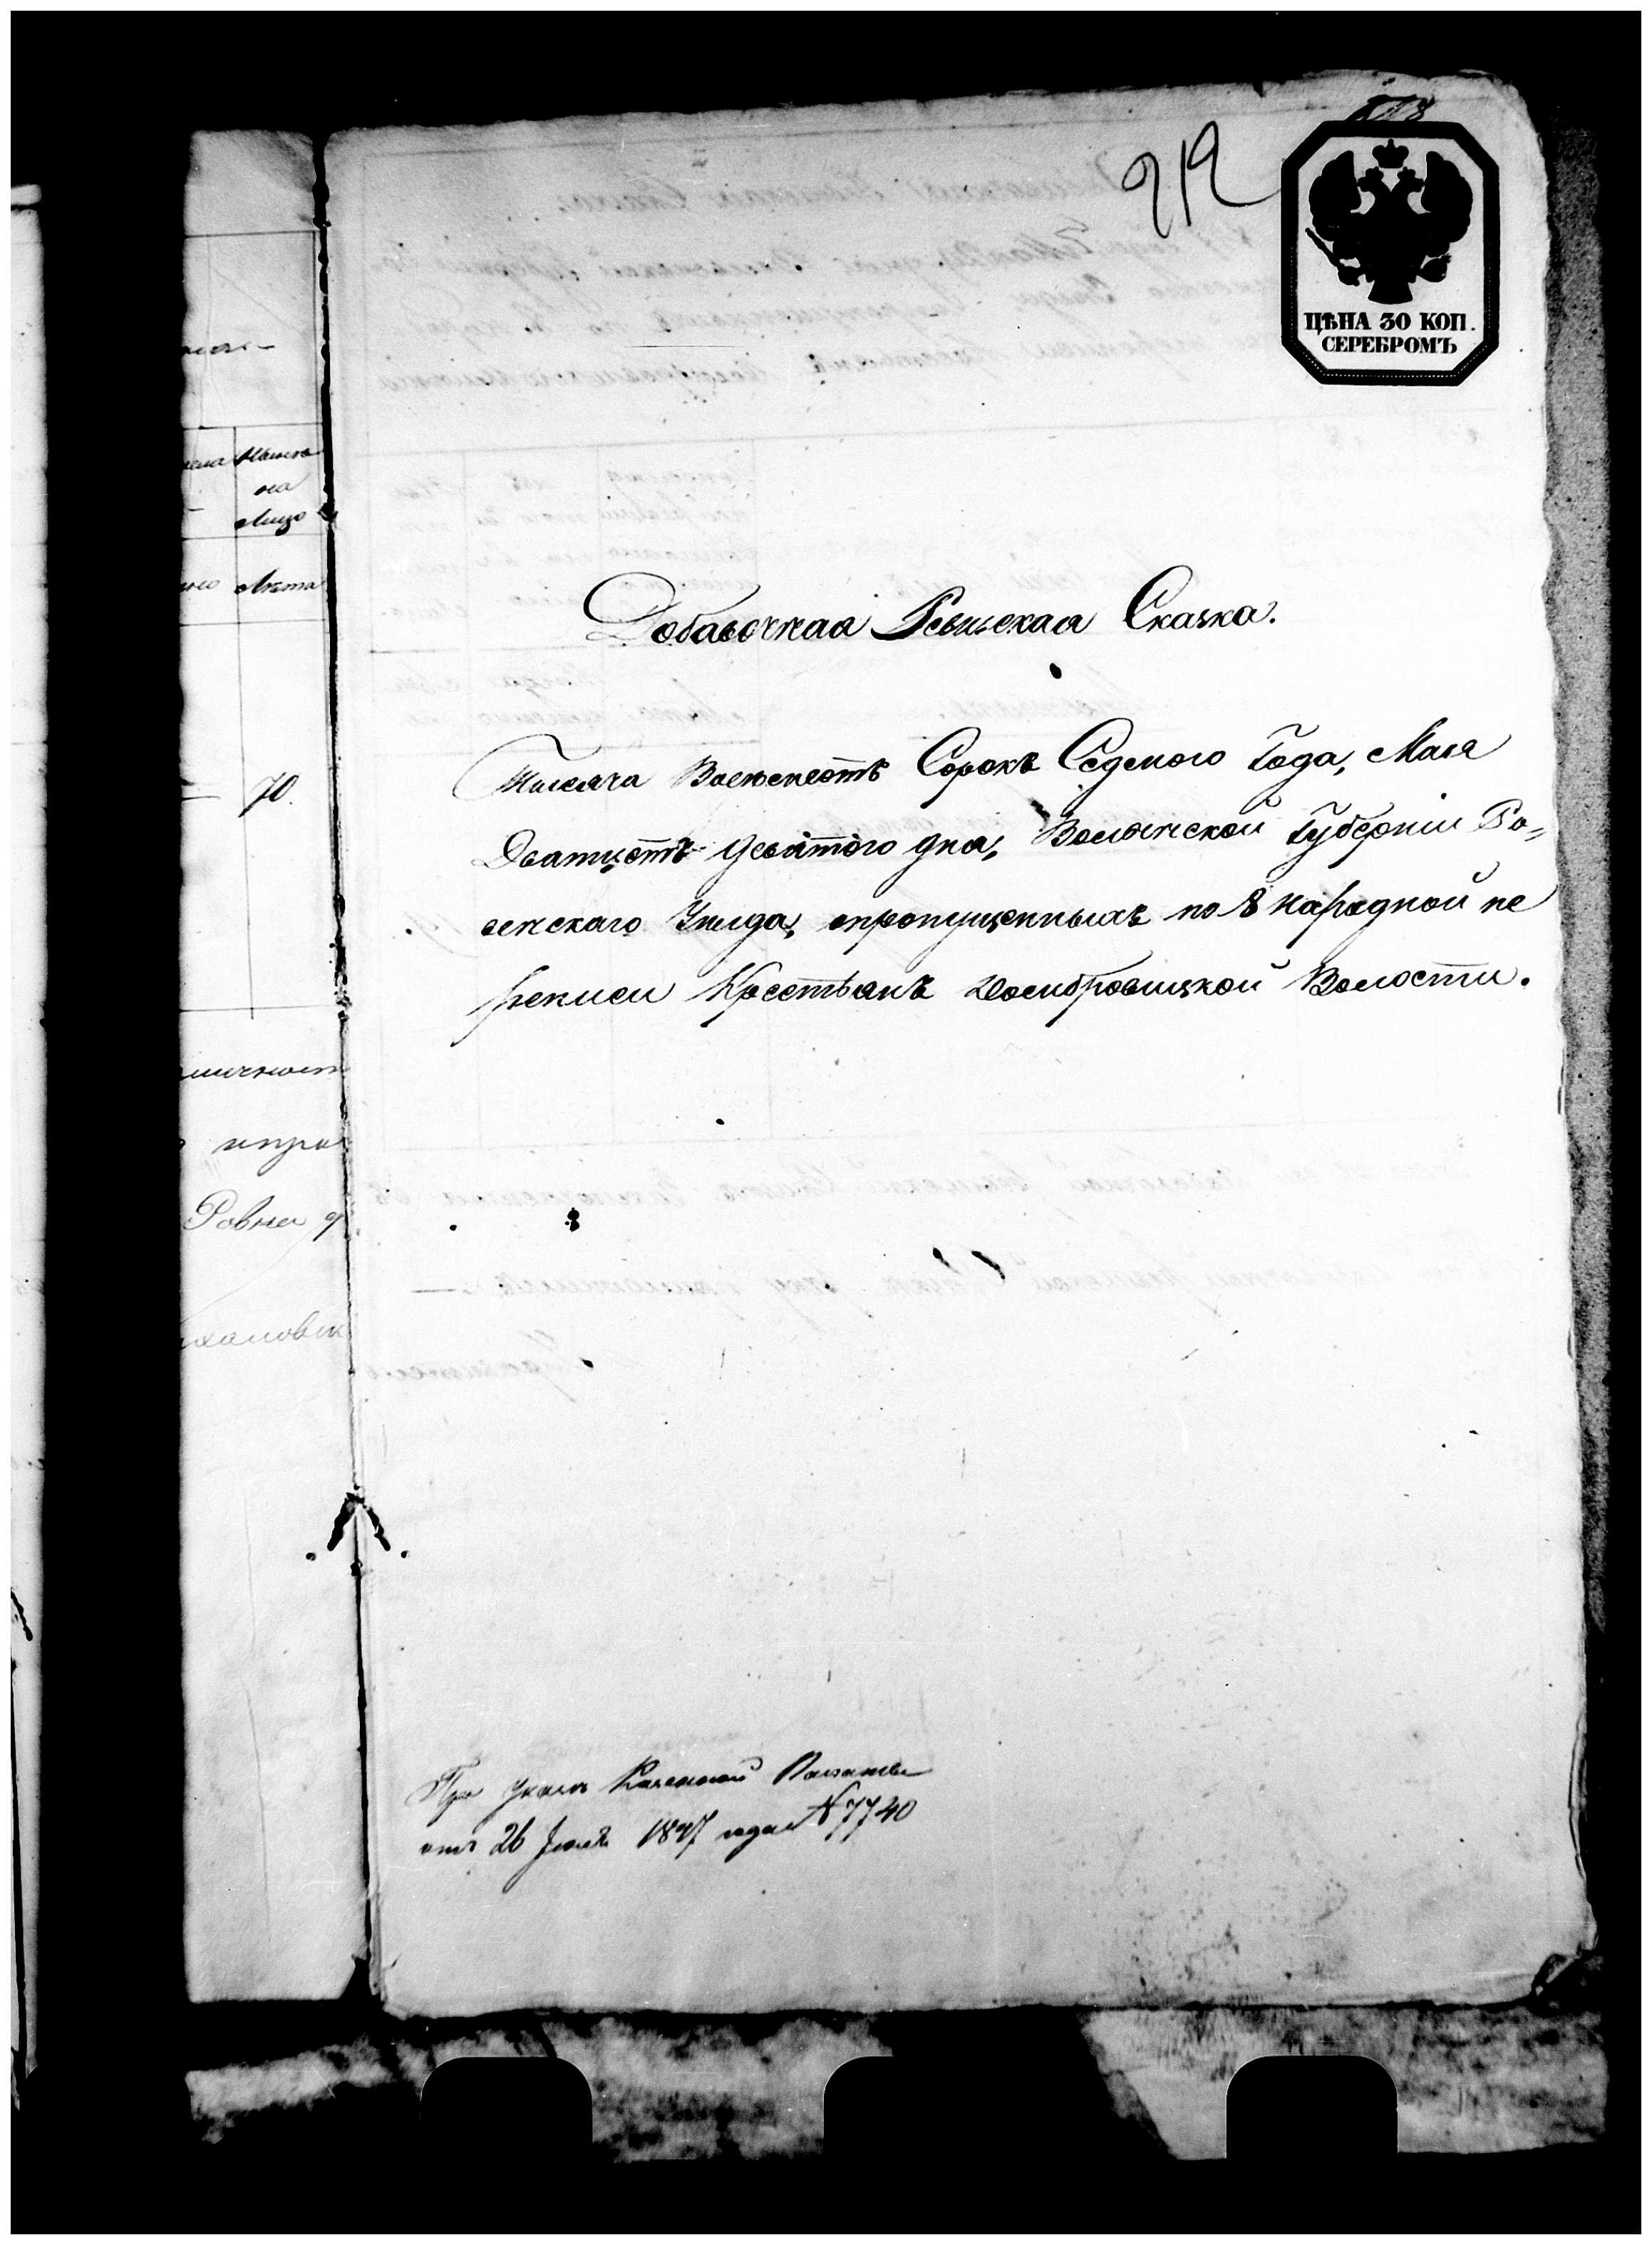 212
ЦѢНА 30 КОП.
СЕРЕБРОМЪ
Добавочная Ревизская Сказка.
Тысяча Восемсотъ Сорокъ Седмого Года, Мая
Дватцетъ девятого дня, Волынской Губерніи Ро-
венскаго Уезда, опропущенныхъ по 8 народной пе
реписи Крестьянъ Домбровицкой Волости.
При указѣ Казенной Палаты
отъ 26 Іюля 1847 года N 7740
на
Лицо
Лѣта
70.
Ровни